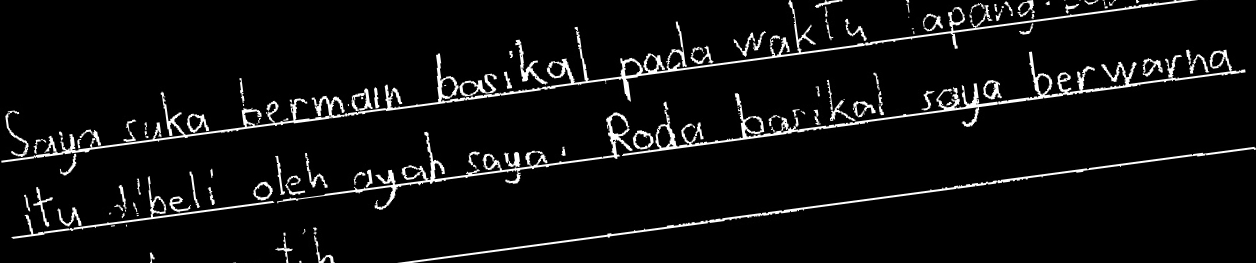 Saya suka bermain basikal pada waktu lapang.
itu dibeli oleh ayah saya. Roda basikal saya berwarna